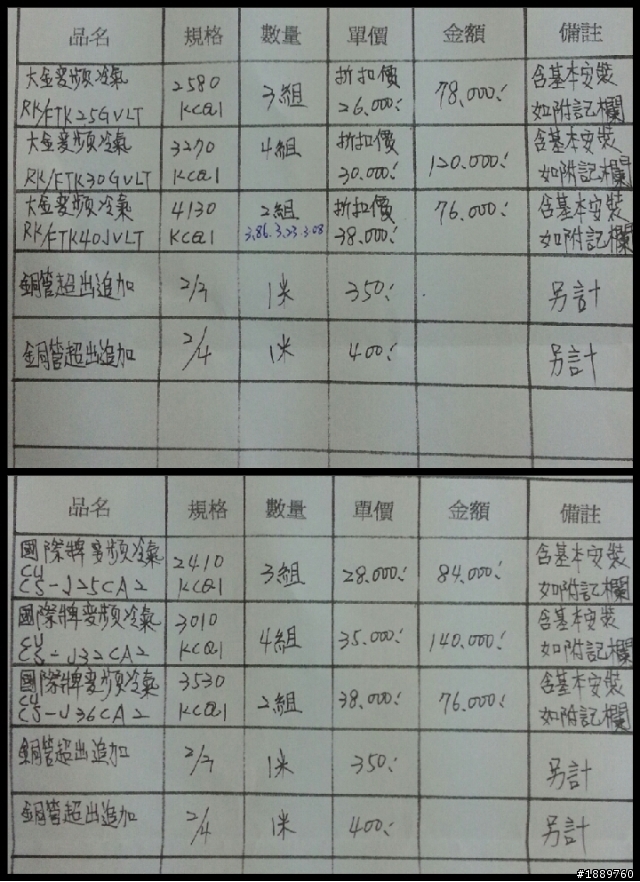 品名 規格 數量 單價 金額 備註
大金變頻冷氣 2580 3組 折扣價 78,000.- 含基本安裝
RK/FTK25GVLT kcal 26,000.- 如附記欄
大金變頻冷氣 3270 4組 折扣價 120,000.- 含基本安裝
RK/FTK30GVLT kcal 30,000.- 如附記欄
大金變頻冷氣 4130 2組 折扣價 76,000.- 含基本安裝
RK/FTK40JVLT kcal 3.86. 3.23. 3.08 38,000.- 如附記欄
銅管超出追加 2/3 1米 350.- 另計
銅管超出追加 2/4 1米 400.- 另計
品名 規格 數量 單價 金額 備註
國際牌變頻冷氣 2410 3組 28,000.- 84,000.- 含基本安裝
CU
CS-J25CA2 kcal 如附記欄
國際牌變頻冷氣 3010 4組 35,000.- 140,000.- 含基本安裝
CU
CS-J32CA2 kcal 如附記欄
國際牌變頻冷氣 3530 2組 38,000.- 76,000.- 含基本安裝
CU
CS-J36CA2 kcal 如附記欄
銅管超出追加 2/3 1米 350.- 另計
銅管超出追加 2/4 1米 400.- 另計
#1889760